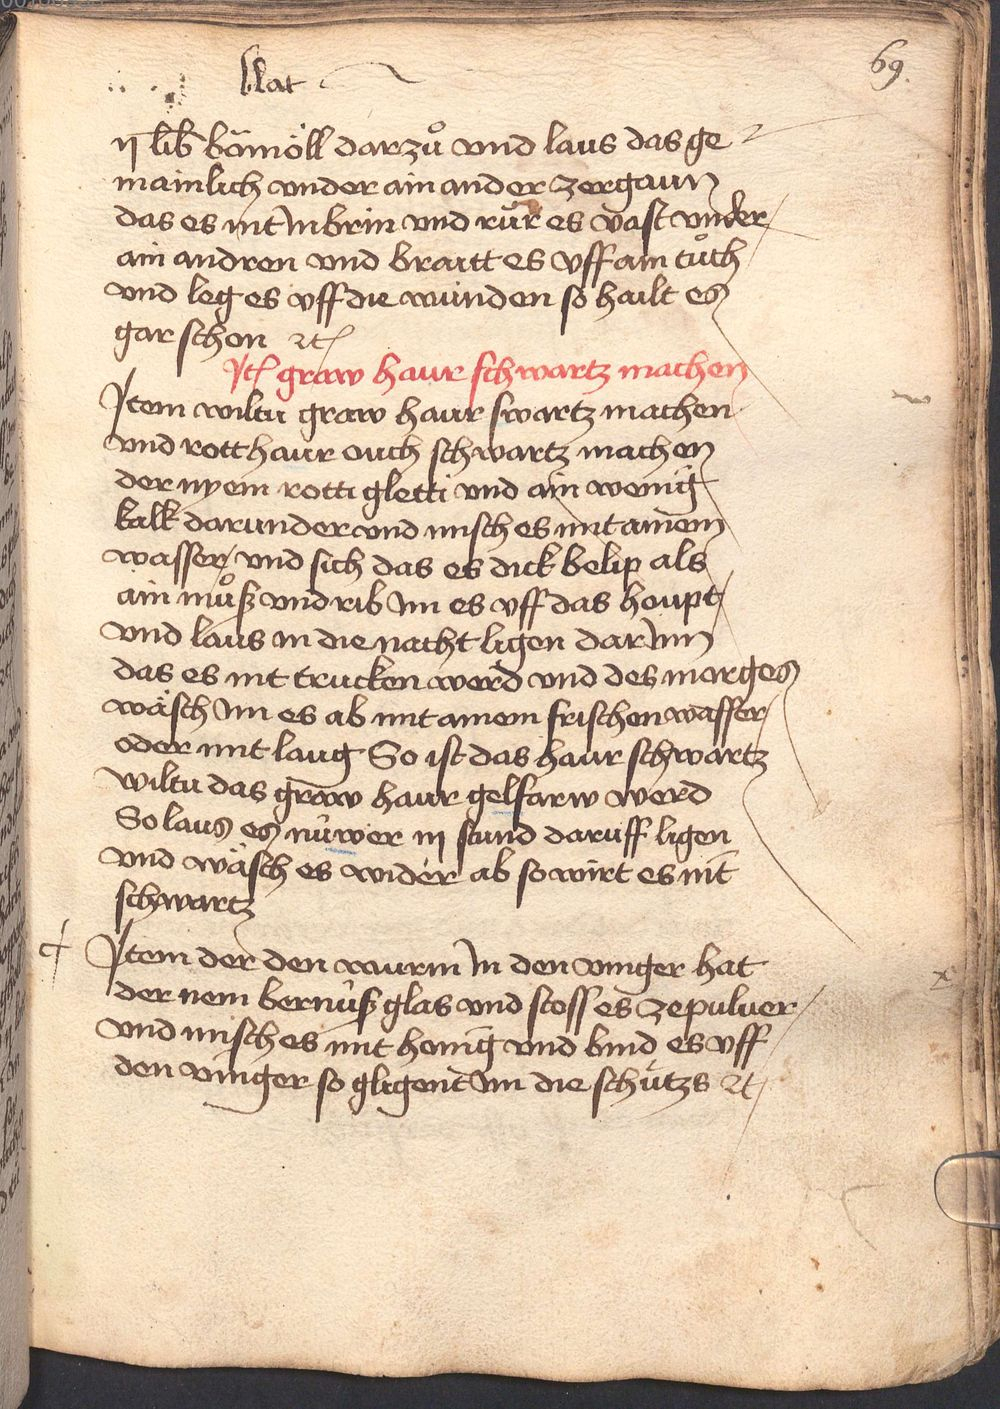 blat
69.
ij lib bömöll darzuͦ vnd laus das ge
mainlich vnder ain ander zergaun
das es nit Inbrin vnd ruͤr es vast vnder
ain andren vnd braitt es vff ain tuͦch
vnd leg es vff die wunden so hailt es
gar schon ꝛc
Itͤ graw haur schwartz machen
Item wiltu graw haur swartz machen
vnd rott haur ouch schwartz machen
der nyem rotti gletti vnd ain wenig
kalk darunder vnd misch es mit ainem
wasser vnd sich das es dick belip als
ain muͦß vnd rib Im es vff das houpt
vnd laus in die nacht ligen dar Inn
das es nit trucken werd vnd des morges
wäsch Im es ab mit ainem frischen wasser
oder mit laug So ist das haur schwartz
wiltu das graw haur gelfarw werd
So laus es nuwer iij stund daruff ligen
vnd wäsch es wider ab so wirt es nit
schwartz
Item der den wurm In den vinger hat
der nem bernuß glas vnd stoss es ze puluer
vnd misch es mit honig vnd bind es vff
den vinger so gligent Im die schutzs ꝛc